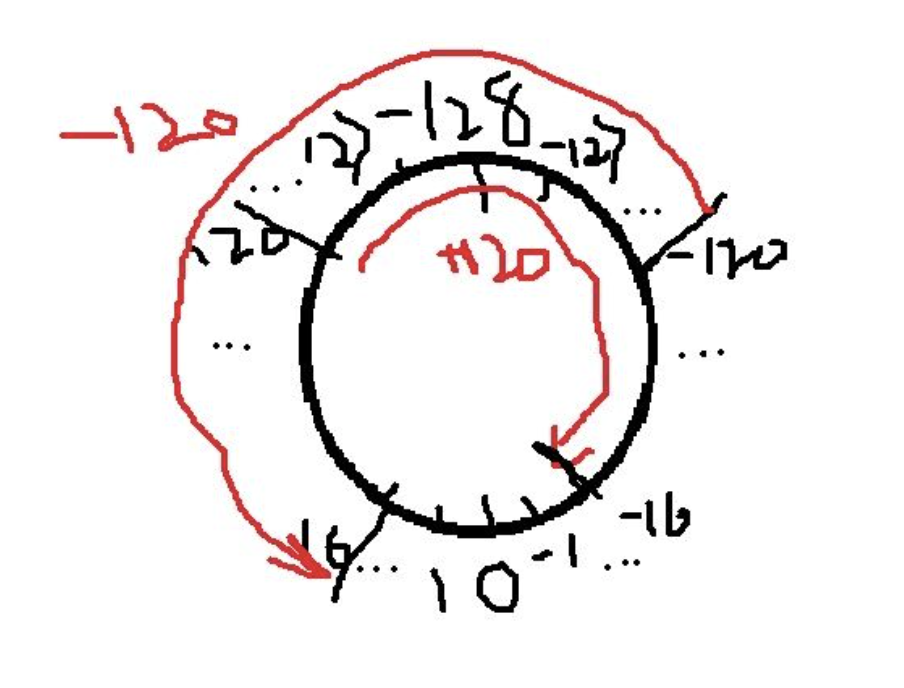 -120
127 -128 -127
...
...
120
+120
-120
...
...
16 ... 1 0 -1 ... -16